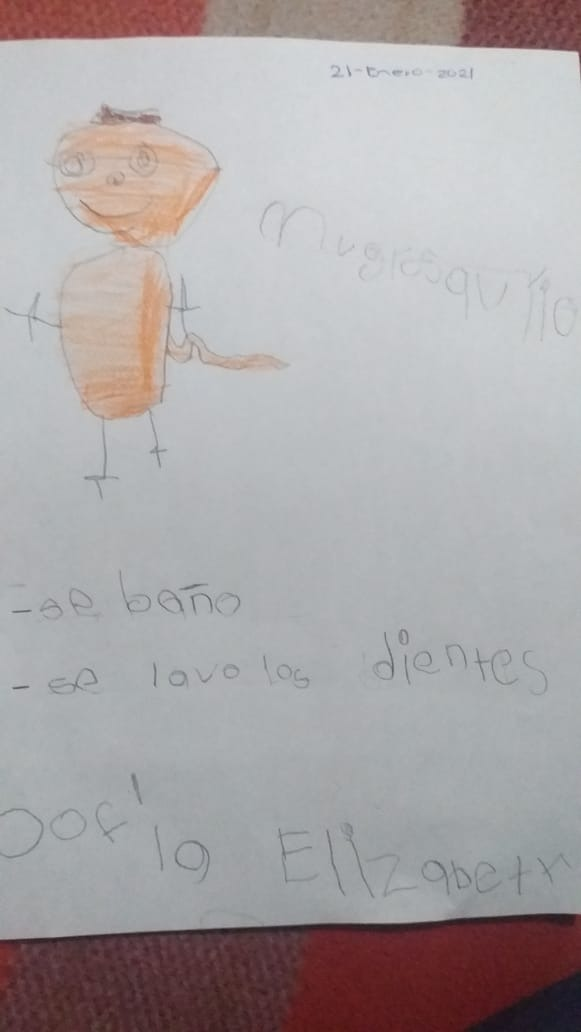 21-Enero-2021
mugrosquito
-se baño
-se lavo los dientes
Elizabeth